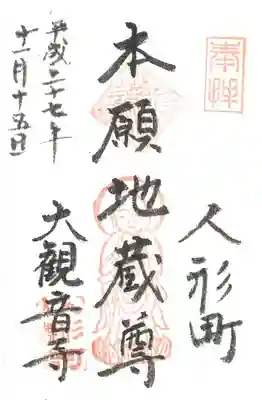 奉拝
人形町
本願地蔵尊
大観音寺
平成二十七年
十一月十五日